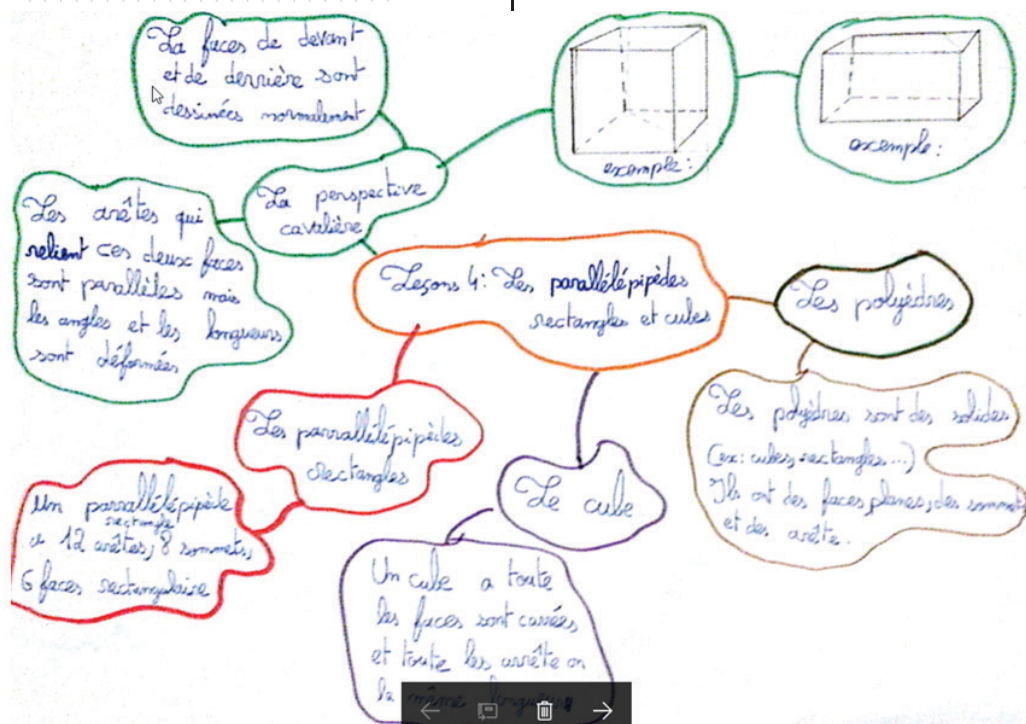 La faces de devant
et de derrière sont
dessinées normalement
exemple :
exemple :
La perspective
cavalière
Les arêtes qui
relient ces deux faces
sont parallèles mais
les angles et les longueurs
sont déformées
Leçons 4 : Les parallélépipèdes
rectangles et cubes
Les polyédres
Les polyédres sont des solides
(ex: cubes, rectangles ...)
Ils ont des faces planes, des sommets
et des arête.
Les parrallélépipèdes
rectangles
Un parrallélépipède
rectangle
a 12 arêtes, 8 sommets,
6 faces rectangulaire
Le cube
Un cube a toute
les faces sont carrées
et toute les arrête on
la même longueur